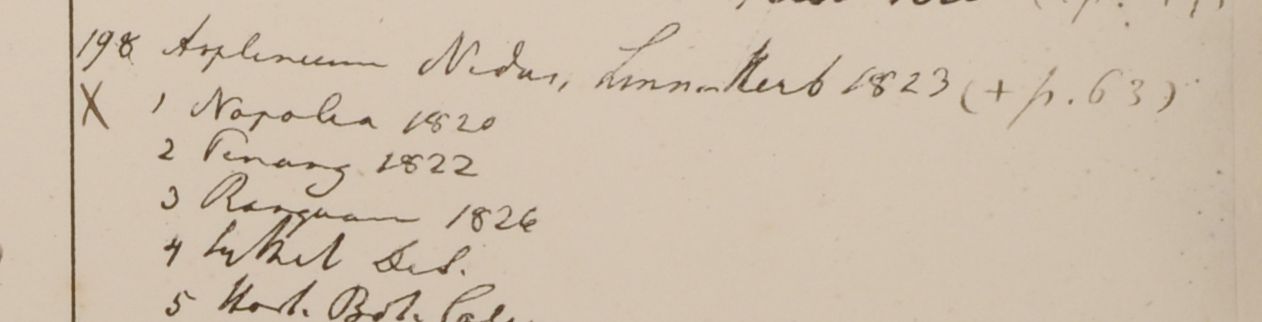 198 Asplenium Nidus, Linn. Herb 1823 (+ p. 63)
X 1 Napalia 1820
2 Penang 1822
3 Rangoon 1826
4 Sylhet DeS.
5 Hort. Bot. Calc